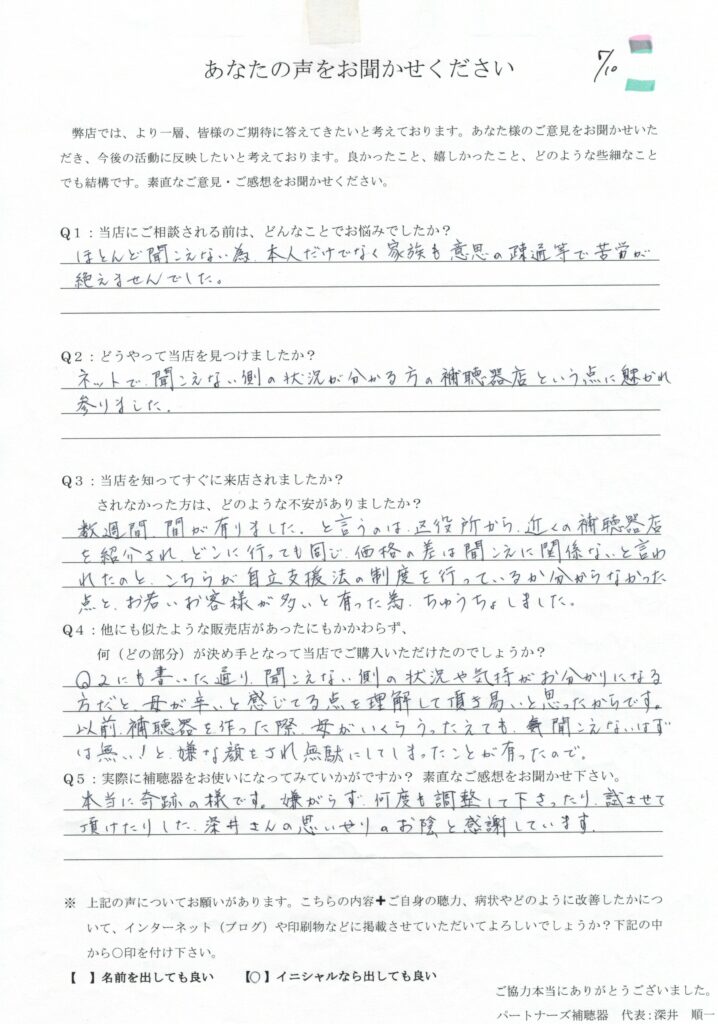 あなたの声をお聞かせください
7/10
弊店では、より一層、皆様のご期待に答えてきたいと考えております。あなた様のご意見をお聞かせいた
だき、今後の活動に反映したいと考えております。良かったこと、嬉しかったこと、どのような些細なこと
でも結構です。素直なご意見・ご感想をお聞かせください。
Q1：当店にご相談される前は、どんなことでお悩みでしたか？
ほとんど聞こえない為、本人だけでなく家族も意思の疎通等で苦労が
絶えませんでした。
Q2：どうやって当店を見つけましたか？
ネットで、聞こえない側の状況が分かる方の補聴器店という点に魅かれ
参りました。
Q3：当店を知ってすぐに来店されましたか？
されなかった方は、どのような不安がありましたか？
数週間、間が有りました。と言うのは、区役所から、近くの補聴器店
を紹介され、どこに行っても同じ、価格の差は聞こえに関係ないと言わ
れたのと、こちらが自立支援法の制度を行っているか分からなかった
点と、お若いお客様が多いと有った為、ちゅうちょしました。
Q4：他にも似たような販売店があったにもかかわらず、
何（どの部分）が決め手となって当店でご購入いただけたのでしょうか？
Q2にも書いた通り、聞こえない側の状況や気持がお分かりになる
方だと、母が辛いと感じてる点を理解して頂き易いと思ったからです。
以前、補聴器を作った際、母がいくらうったえても、聞こえないはず
は無い！と、嫌な顔をされ無駄にしてしまったことが有ったので。
Q5：実際に補聴器をお使いになってみていかがですか？ 素直なご感想をお聞かせ下さい。
本当に奇跡の様です。嫌がらず、何度も調整して下さったり、試させて
頂けたりした、深井さんの思いやりのお陰と感謝しています。
※ 上記の声についてお願いがあります。こちらの内容＋ご自身の聴力、病状やどのように改善したかにつ
いて、インターネット（ブログ）や印刷物などに掲載させていただいてよろしいでしょうか？下記の中
から〇印を付け下さい。
【 】名前を出しても良い 【〇】イニシャルなら出しても良い
ご協力本当にありがとうございました。
パートナーズ補聴器 代表：深井 順一